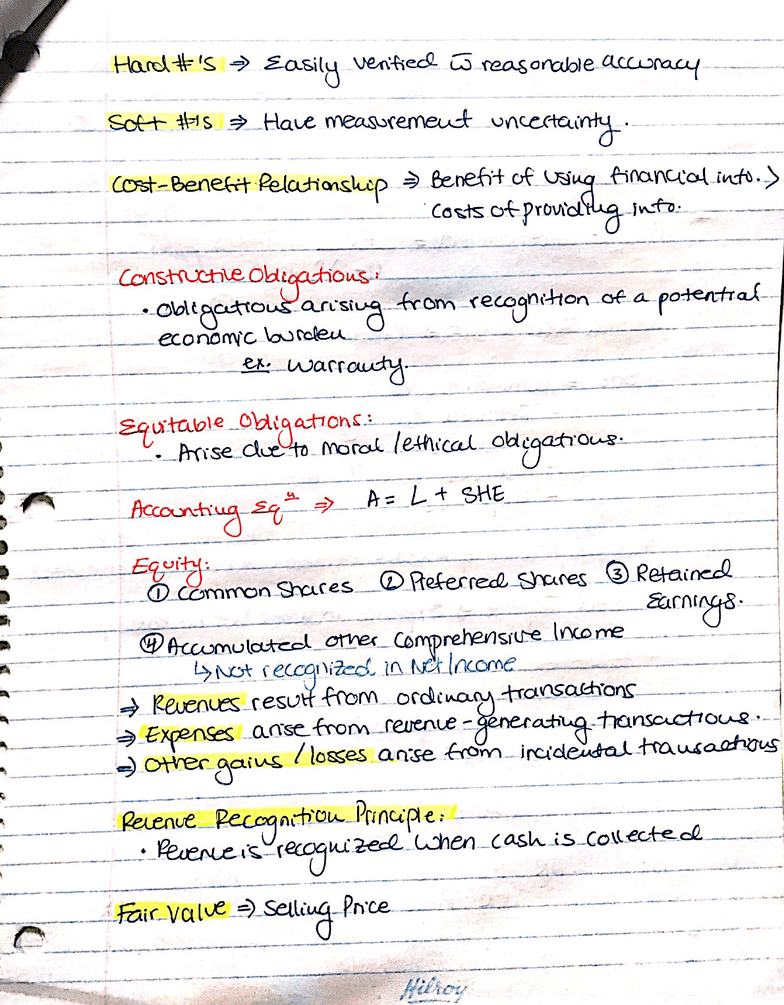 Hard #'s ⇒ Easily verified w̄ reasonable accuracy
Soft #'s ⇒ Have measurement uncertainty.
Cost-Benefit Relationship ⇒ Benefit of using financial info. >
costs of providing info.
Constructive Obligations:
• Obligations arising from recognition of a potential
economic burden
ex. Warranty.
Equitable Obligations:
• Arise due to moral/ethical obligations.
Accounting Eqⁿ ⇒ A = L + SHE
Equity:
① Common Shares ② Preferred Shares ③ Retained
Earnings.
④ Accumulated other Comprehensive Income
↳ Not recognized in Net Income
⇒ Revenues result from ordinary transactions
⇒ Expenses arise from revenue-generating transactions.
⇒ Other gains/losses arise from incidental transactions
Revenue Recognition Principle:
• Revenue is recognized when cash is collected
Fair Value ⇒ Selling Price
Hilroy